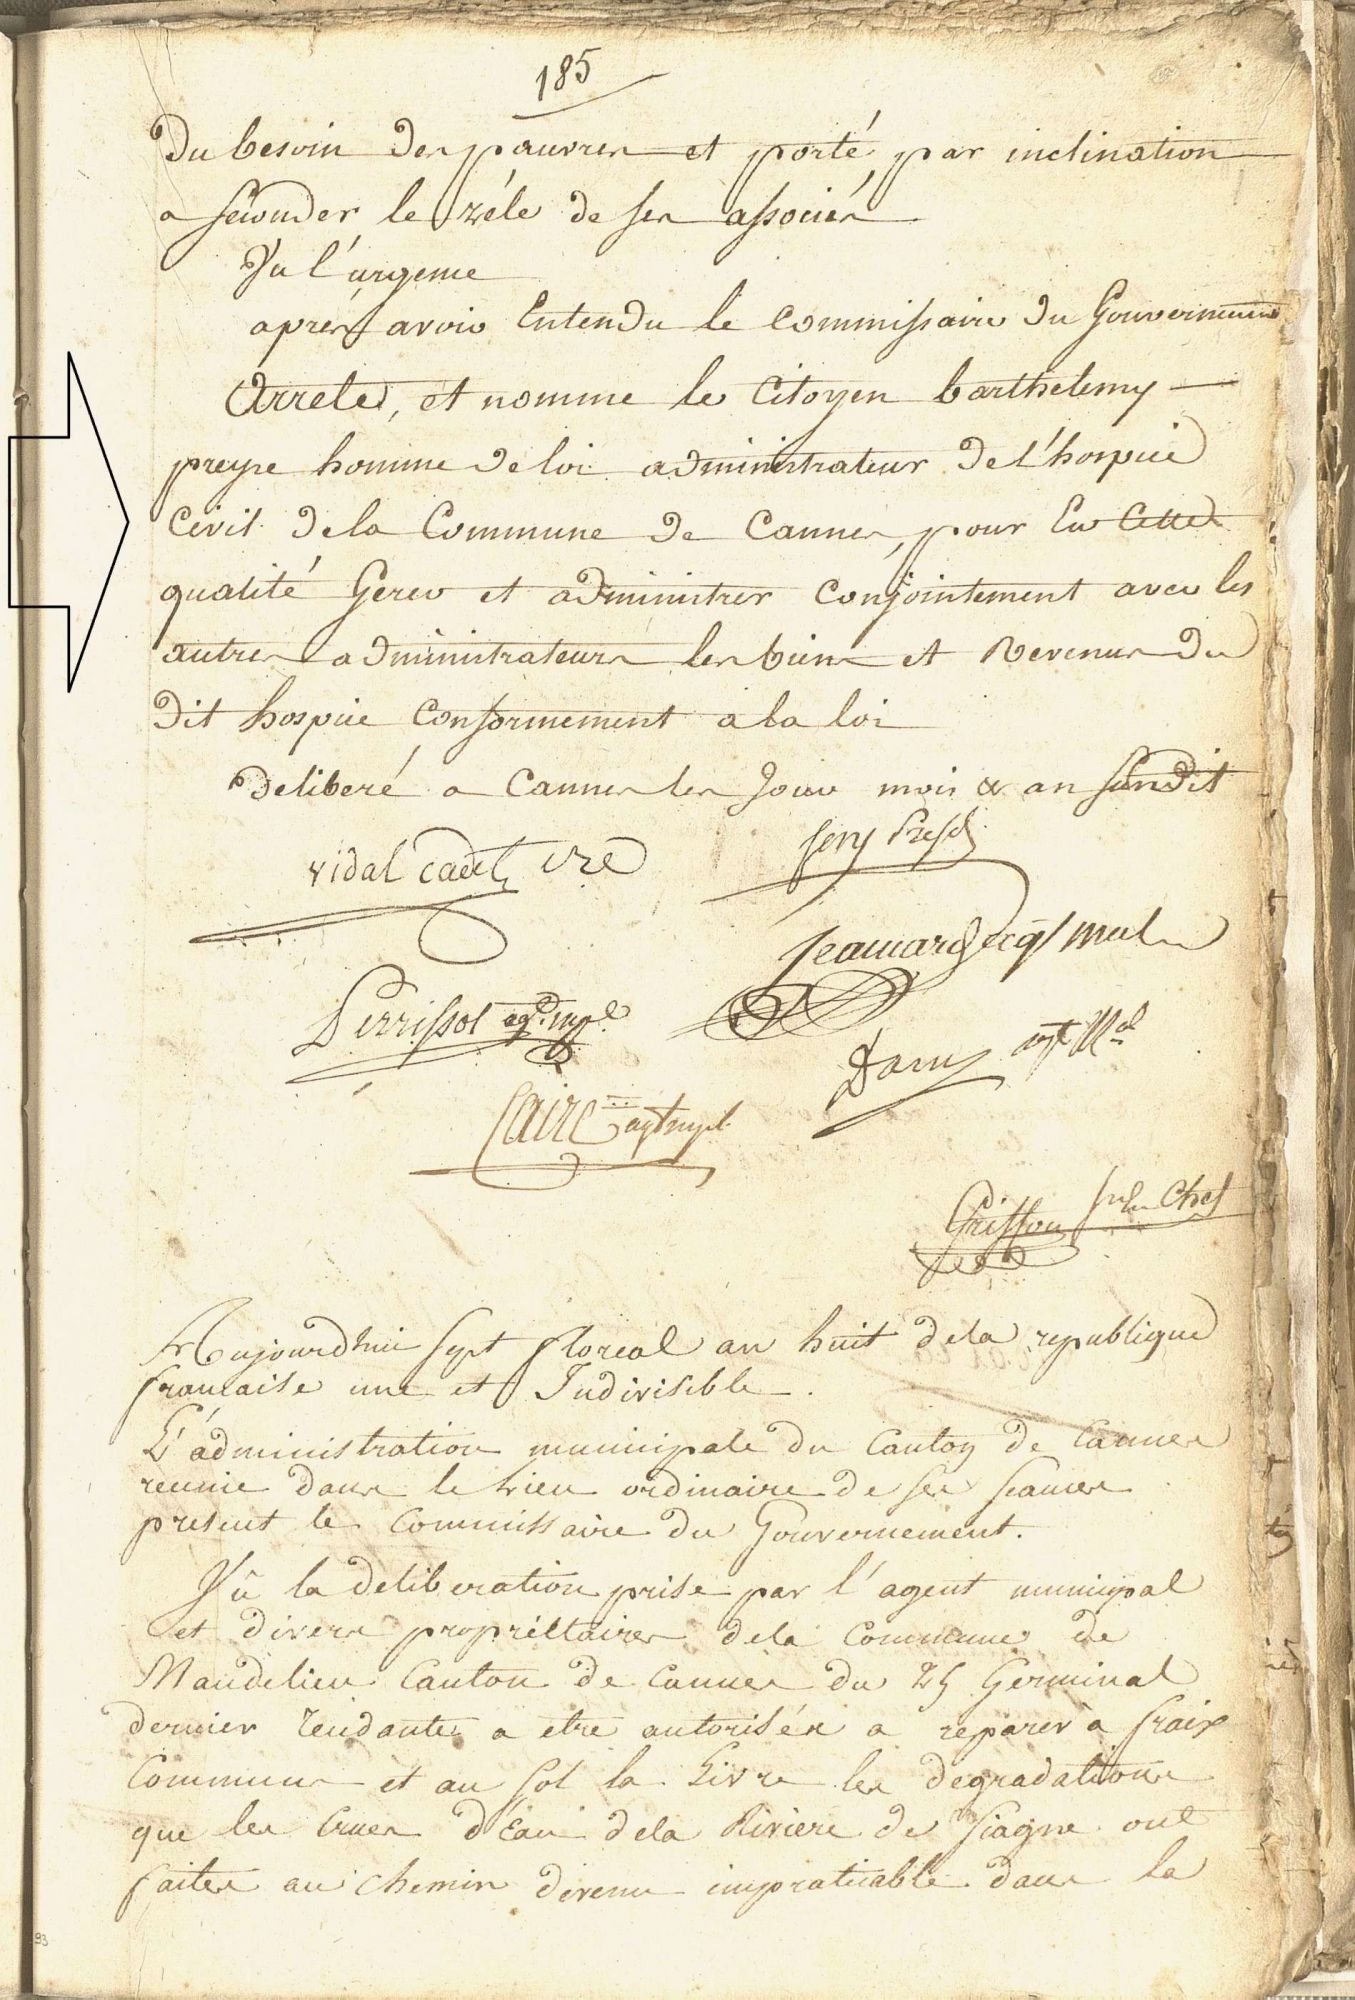 185
Du besoin des pauvres et porté par inclination
a seconder le zéle de ses associés
Vu l'urgence
aprés avoir Entendu le Commissaire du Gouvernement
Arrete, et nomme le Citoyen barthelemy
preyre homme de loi administrateur de l'hospice
Civil de la Commune de Cannes, pour En Cette
qualité Gerer et administrer Conjointement avec les
autres administrateurs les biens et Revenus du
dit hospice Conformement a la loi
Deliberé a Cannes les Jour mois & an susdit
vidal cadet
Perrissol agt. mpl.
Daru agt Mal
Caire agt mpl.
Griffon Chef
Aujourdhui sept floreal an huit dela republique
francaise une et Indivisible.
L'administration municipale du Canton de Cannes
reunie dans le lieu ordinaire de ses seances
present le Commissaire du Gouvernement.
Vû la deliberation prise par l'agent municipal
et divers propriéttaires dela Commune de
Mandelieu Canton de Cannes du 25 Germinal
dernier tendante a etre autorisés a reparer à fraix
Communs et au sol la Livre les degradations
que les Crues d'Eau dela Riviere de Siagne ont
faites au chemin devenu impraticable dans la
93